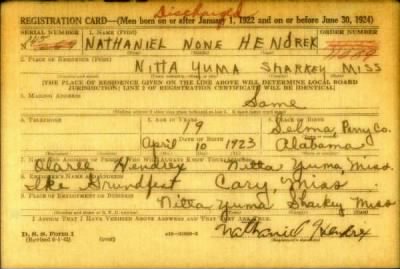 Discharged
REGISTRATION CARD—(Men born on or after January 1, 1922 and on or before June 30, 1924)
SERIAL NUMBER 1. NAME (Print) ORDER NUMBER
NATHANIEL NONE HENDREX
2. PLACE OF RESIDENCE (Print)
NITTA YUMA SHARKEY MISS
[THE PLACE OF RESIDENCE GIVEN ON THE LINE ABOVE WILL DETERMINE LOCAL BOARD
JURISDICTION; LINE 2 OF REGISTRATION CERTIFICATE WILL BE IDENTICAL]
3. MAILING ADDRESS
Same
4. TELEPHONE 5. AGE IN YEARS 6. PLACE OF BIRTH
19 Selma, Perry Co.
DATE OF BIRTH
April 10 1923 Alabama
7. NAME AND ADDRESS OF PERSON WHO WILL ALWAYS KNOW YOUR ADDRESS
Hendrex Nitta Yuma, Miss.
8. EMPLOYER'S NAME AND ADDRESS
Ike Grundfest Cary, Miss
9. PLACE OF EMPLOYMENT OR BUSINESS
Nitta Yuma Sharkey Miss
I AFFIRM THAT I HAVE VERIFIED ABOVE ANSWERS AND THAT THEY ARE TRUE.
D. S. S. Form 1
(over)
Nathaniel Hendrix